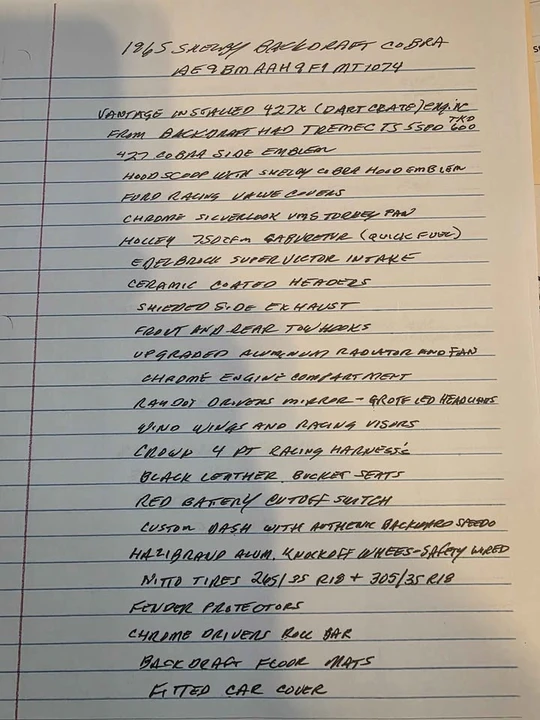 1965 SHELBY BACKDRAFT COBRA
AE9BMAAH9F1MT1074
VANTAGE INSTALLED 427X (DART CRATE) ENgiNE
FROM BACKDRAFT HAD TREMEC T5 5580 TKO 600
427 COBRA SIDE EMBLEM
HOOD SCOOP WITH SHELBY COBRA HOOD EMBLEM
FORD RACING VALVE COVERS
CHROME SILVERLOOK TORKEY FAN
HOLLEY 750 CFM (QUICK FUEL)
EDELBROCK SUPER VICTOR INTAKE
CERAMIC COATED HEADERS
SHIEDED SIDE EXHAUST
FRONT AND REAR TOW HOOKS
UPGRADED ALUMINUM RADIATOR AND FAN
CHROME ENGINE COMPARTMENT
DRIVERS MIRROR - GROTE LED HEADLIGHTS
WIND WINGS AND RACING VISORS
CROWD 4 PT RACING HARNESS'S
BLACK LEATHER BUCKET SEATS
RED BATTERY CUTOFF SWITCH
CUSTOM DASH WITH AUTHENIC BACKWARD SPEEDO
HALIBRAND ALUM. KNOCKOFF WHEES - SAFETY WIRED
NITTO TIRES 265/35 R18 + 305/35 R18
FENDER PROTECTORS
CHROME DRIVERS ROLL BAR
BACKDRAFT FLOOR MATS
FITTED CAR COVER